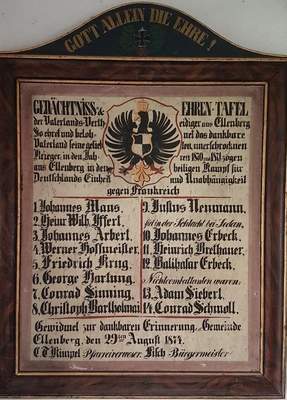 GOTT ALLEIN DIE EHRE!
GEDÄCHTNISS & EHREN-TAFEL
der Vaterlands-Verth eidiger aus Ellenberg
So ehrt und beloh net das dankbare
Vaterland seine gelieb ten, unerschrocknen
Krieger, in den Jah ren 1870 u 1871 zogen
aus Ellenberg in den heiligen Kampf für
Deutschlands Einheit und Unabhängigkeit
gegen Frankreich
1. Johannes Maus,
2. Heinr. Wilh. Ifferl,
3. Johannes Arberl
4. Werner Hoffmeister,
5. Friedrich Krug,
6. George Hartung,
7. Conrad Sinning,
8. Christoph Bartholmai
9. Justus Neumann,
fiel in der Schlacht bei Sedan,
10. Johannes Erbeck,
11. Heinrich Brethauer,
12. Balthasar Erbeck,
Nichtcombattanten waren:
13. Adam Siebert,
14. Conrad Schmoll.
Gewidmet zur dankbaren Erinnerung, Gemeinde
Ellenberg, den 29ten August 1874.
C. T. Rimpel Pfarrverweser. Fisch Bürgermeister